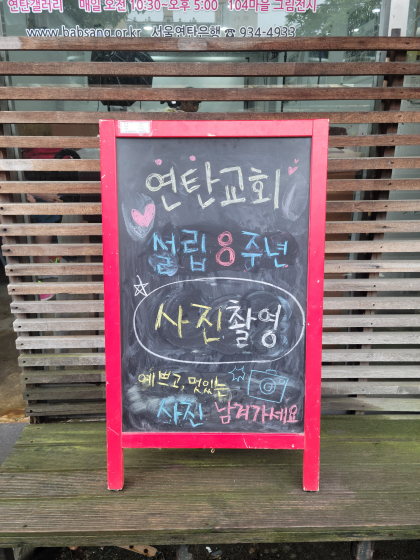 연탄갤러리 매일 오전 10:30~오후 5:00 104마을 그림전시
www.babsang.or.kr 서울연탄은행 ☎ 934-4933
연탄교회
설립 8주년
사진촬영
예쁘고, 멋있는
사진 남겨가세요